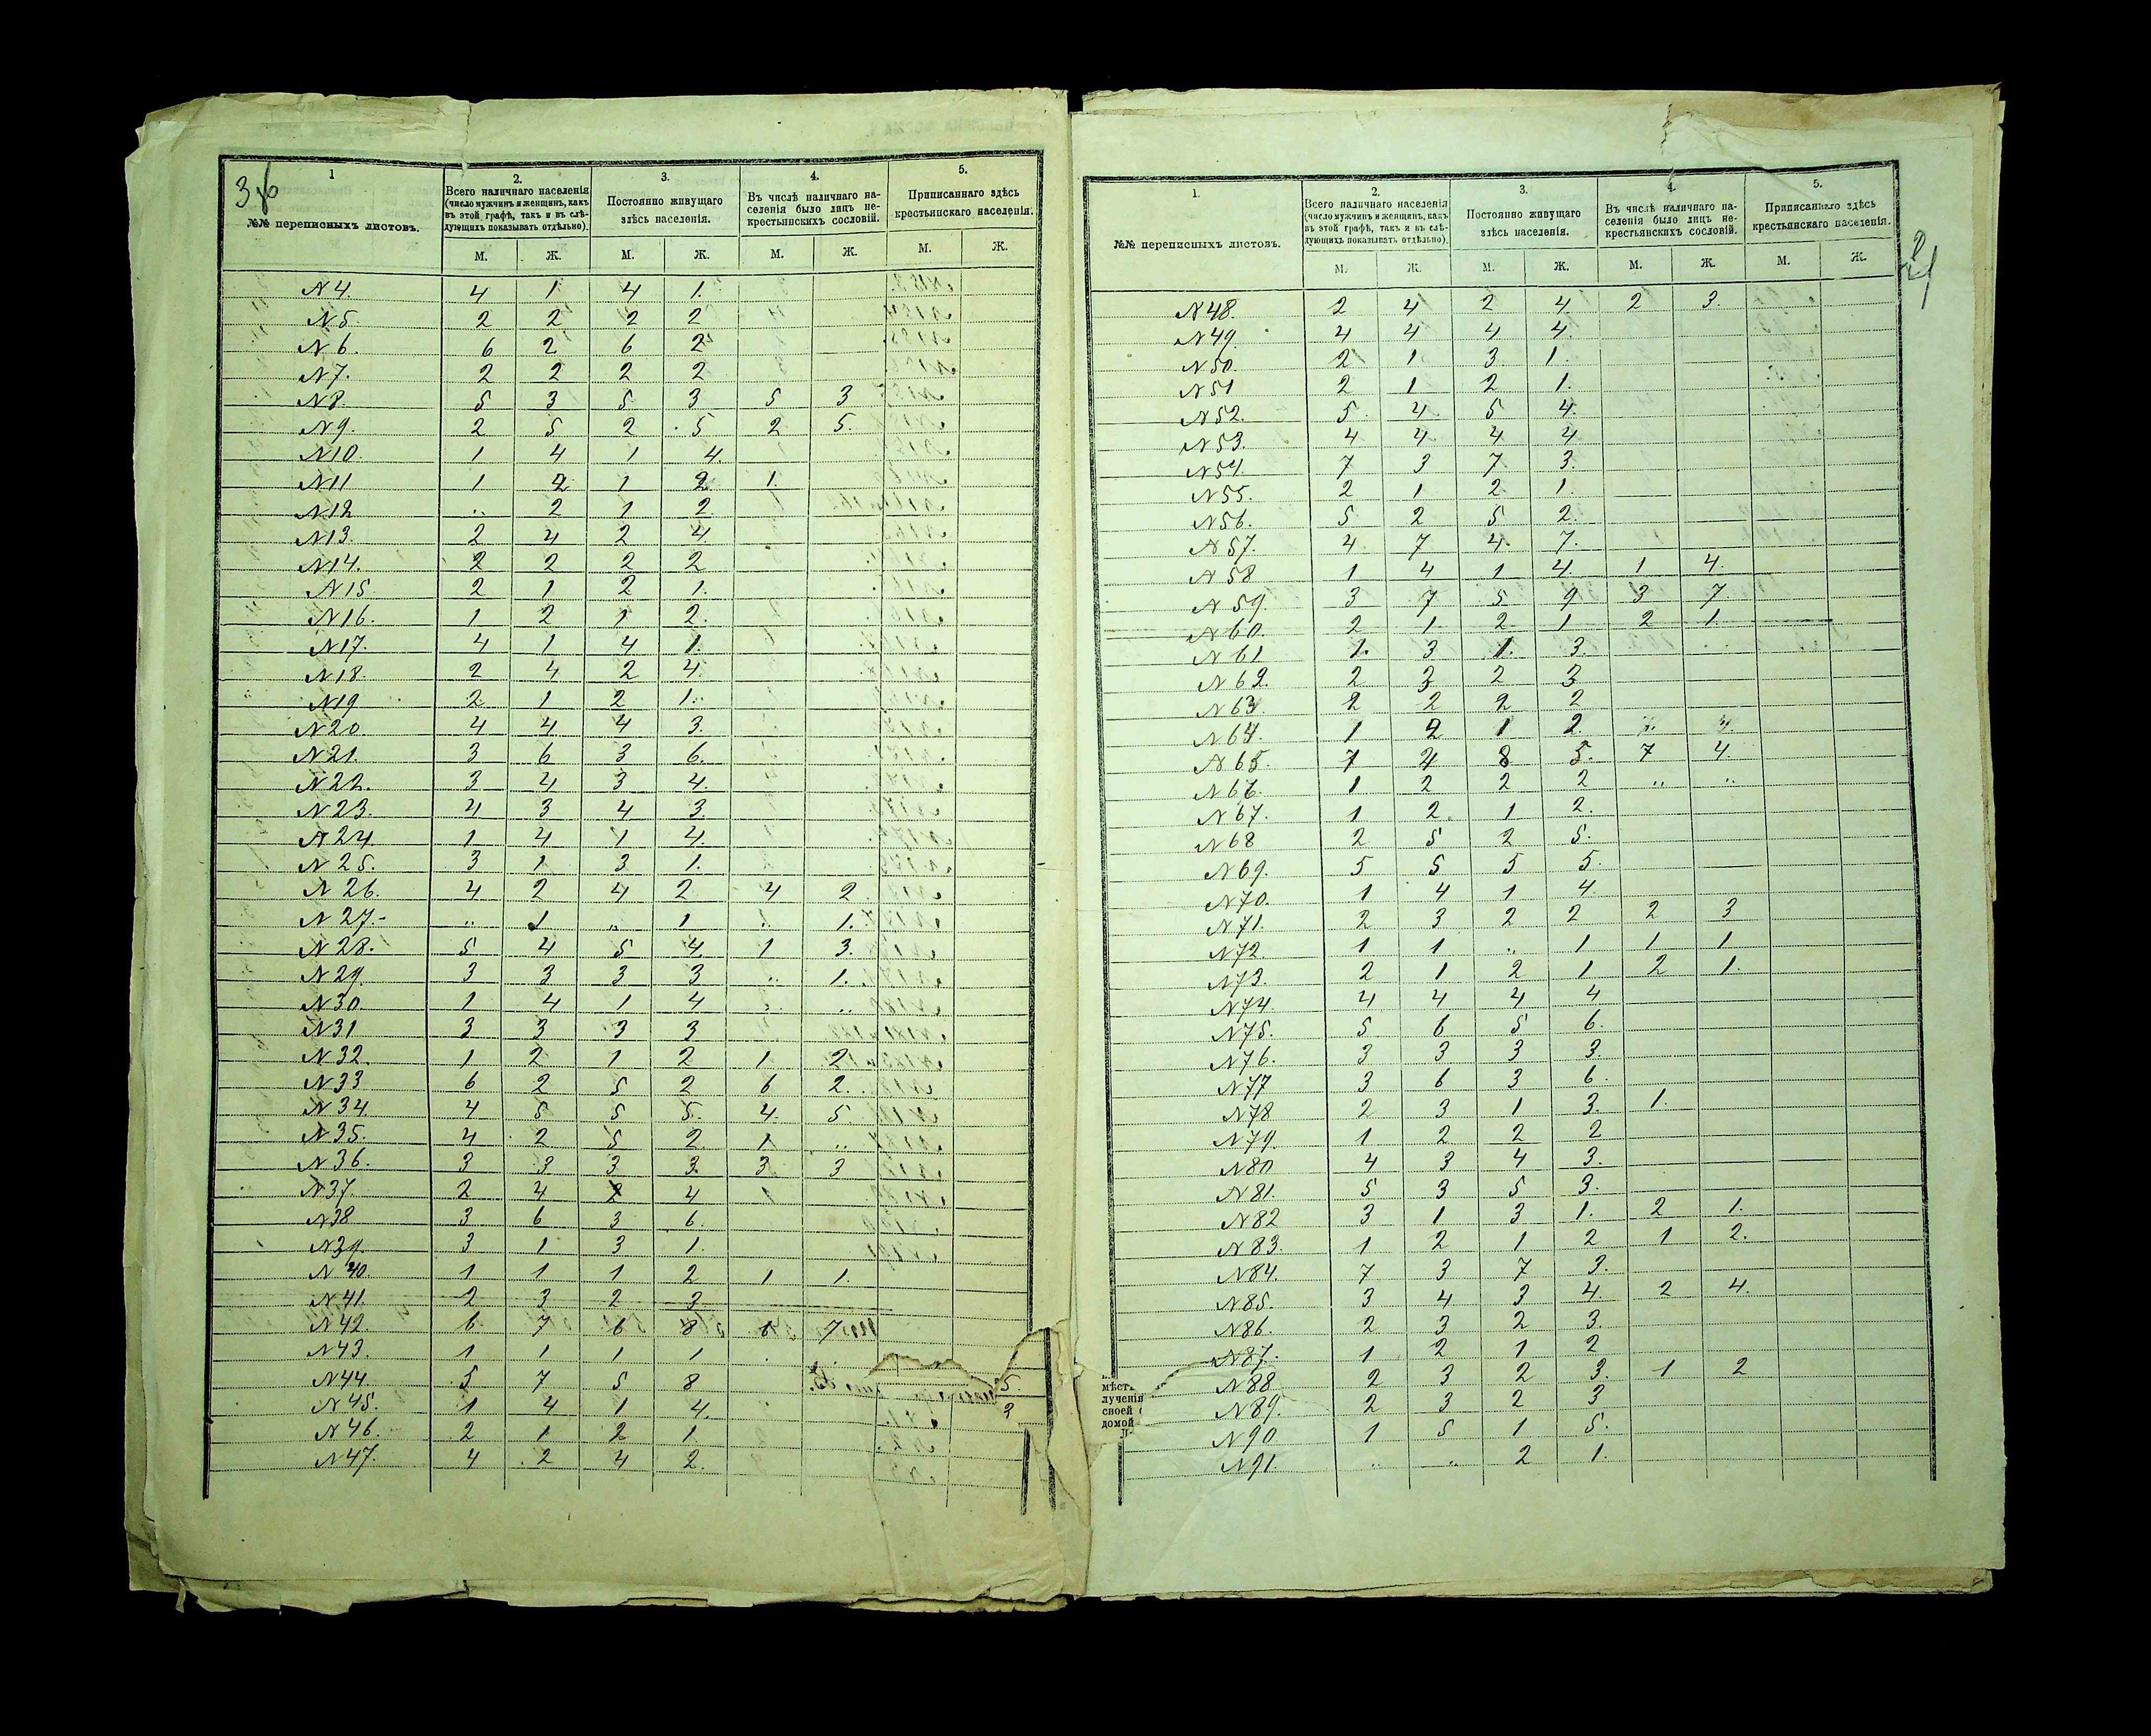 3
1
№№ переписныхъ листовъ.
2.
Всего наличнаго населенія (число мужчинъ и женщинъ, какъ въ этой графѣ, такъ и въ слѣдующихъ показывать отдѣльно).
3.
Постоянно живущаго здѣсь населенія.
4.
Въ числѣ наличнаго населенія было лицъ некрестьянскихъ сословій.
5.
Приписаннаго здѣсь крестьянскаго населенія.
М. Ж. М. Ж. М. Ж. М. Ж.
N 4. 4 1 4 1.
N 5. 2 2 2 2
N 6. 6 2 6 2
N 7. 2 2 2 2
N 8. 5 3 5 3 5 3
N 9. 2 5 2 5 2 5.
N 10. 1 4 1 4.
N 11 1 2 1 2 1.
N 12 .. 2 1 2.
N 13. 2 4 2 4
N 14. 2 2 2 2
N 15 2 1 2 1.
N 16. 1 2 1 2.
N 17. 4 1 4 1.
N 18. 2 4 2 4.
N 19 2 1 2 1.
N 20. 4 4 4 3.
N 21. 3 6 3 6.
N 22. 3 4 3 4.
N 23. 4 3 4 3.
N 24. 1 4 1 4.
N 25. 3 1 3 1.
N 26. 4 2 4 2 4 2
N 27.- .. 1 .. 1 .. 1.
N 28. 5 4 5 4. 1 3.
N 29. 3 3 3 3 .. 1.
N 30. 1 4 1 4 .. ..
N 31 3 3 3 3
N 32. 1 2 1 2 1 2
N 33 6 2 5 2 6 2
N 34. 4 5 5 5. 4. 5.
N 35. 4 2 5 2 1 ..
N 36. 3 3 3 3. 3 3
N 37. 2 4 2 4
N 38 3 6 3 6.
N 39. 3 1 3 1.
N 40. 1 1 1 2 1 1.
N 41. 2 3 2 3
N 42. 6 7 6 8 6 7
N 43. 1 1 1 1
N 44. 5 7 5 8
N 45. 1 4 1 4.
N 46. 2 1 2 1
N 47. 4 2 4 2.
5
1.
№№ переписныхъ листовъ.
2.
Всего наличнаго населенія (число мужчинъ и женщинъ, какъ въ этой графѣ, такъ и въ слѣдующихъ показывать отдѣльно).
3.
Постоянно живущаго здѣсь населенія.
4.
Въ числѣ наличнаго населенія было лицъ некрестьянскихъ сословій.
5.
Приписаннаго здѣсь крестьянскаго населенія.
М. Ж. М. Ж. М. Ж. М. Ж.
N 48. 2 4 2 4. 2 3.
N 49. 4 4 4 4.
N 50. 2 1 3 1.
N 51 2 1 2 1.
N 52. 5 4 5 4.
N 53. 4 4 4 4
N 54. 7 3 7 3.
N 55. 2 1 2 1.
N 56. 5 2 5 2.
N 57. 4 7 4 7.
N 58 1 4 1 4. 1 4.
N 59. 3 7 5 9 3 7
N 60. 2 1 2 1 2 1
N 61 1. 3 1. 3.
N 62. 2 3 2 3
N 63 2 2 2 2
N 64. 1 2 1 2. .. ..
N 65. 7 4 8 5. 7 4.
N 66. 1 2 2 2 .. ..
N 67. 1 2 1 2.
N 68 2 5 2 5.
N 69. 5 5 5 5.
N 70. 1 4 1 4.
N 71. 2 3 2 2 2 3
N 72. 1 1 .. 1 1 1
N 73. 2 1 2 1 2 1.
N 74. 4 4 4 4
N 75. 5 6 5 6.
N 76. 3 3 3 3.
N 77 3 6 3 6.
N 78 2 3 1 3. 1.
N 79. 1 2 2 2
N 80 4 3 4 3.
N 81. 5 3 5 3.
N 82 3 1 3 1. 2 1.
N 83. 1 2 1 2 1 2.
N 84. 7 3 7 3.
N 85. 3 4 3 4. 2 4.
N 86. 2 3 2 3.
N 87. 1 2 1 2
N 88 2 3 2 3. 1 2
N 89. 2 3 2 3
N 90 1 5 1 5.
N 91. .. .. 2 1.
мѣст
лученія
своей
домой